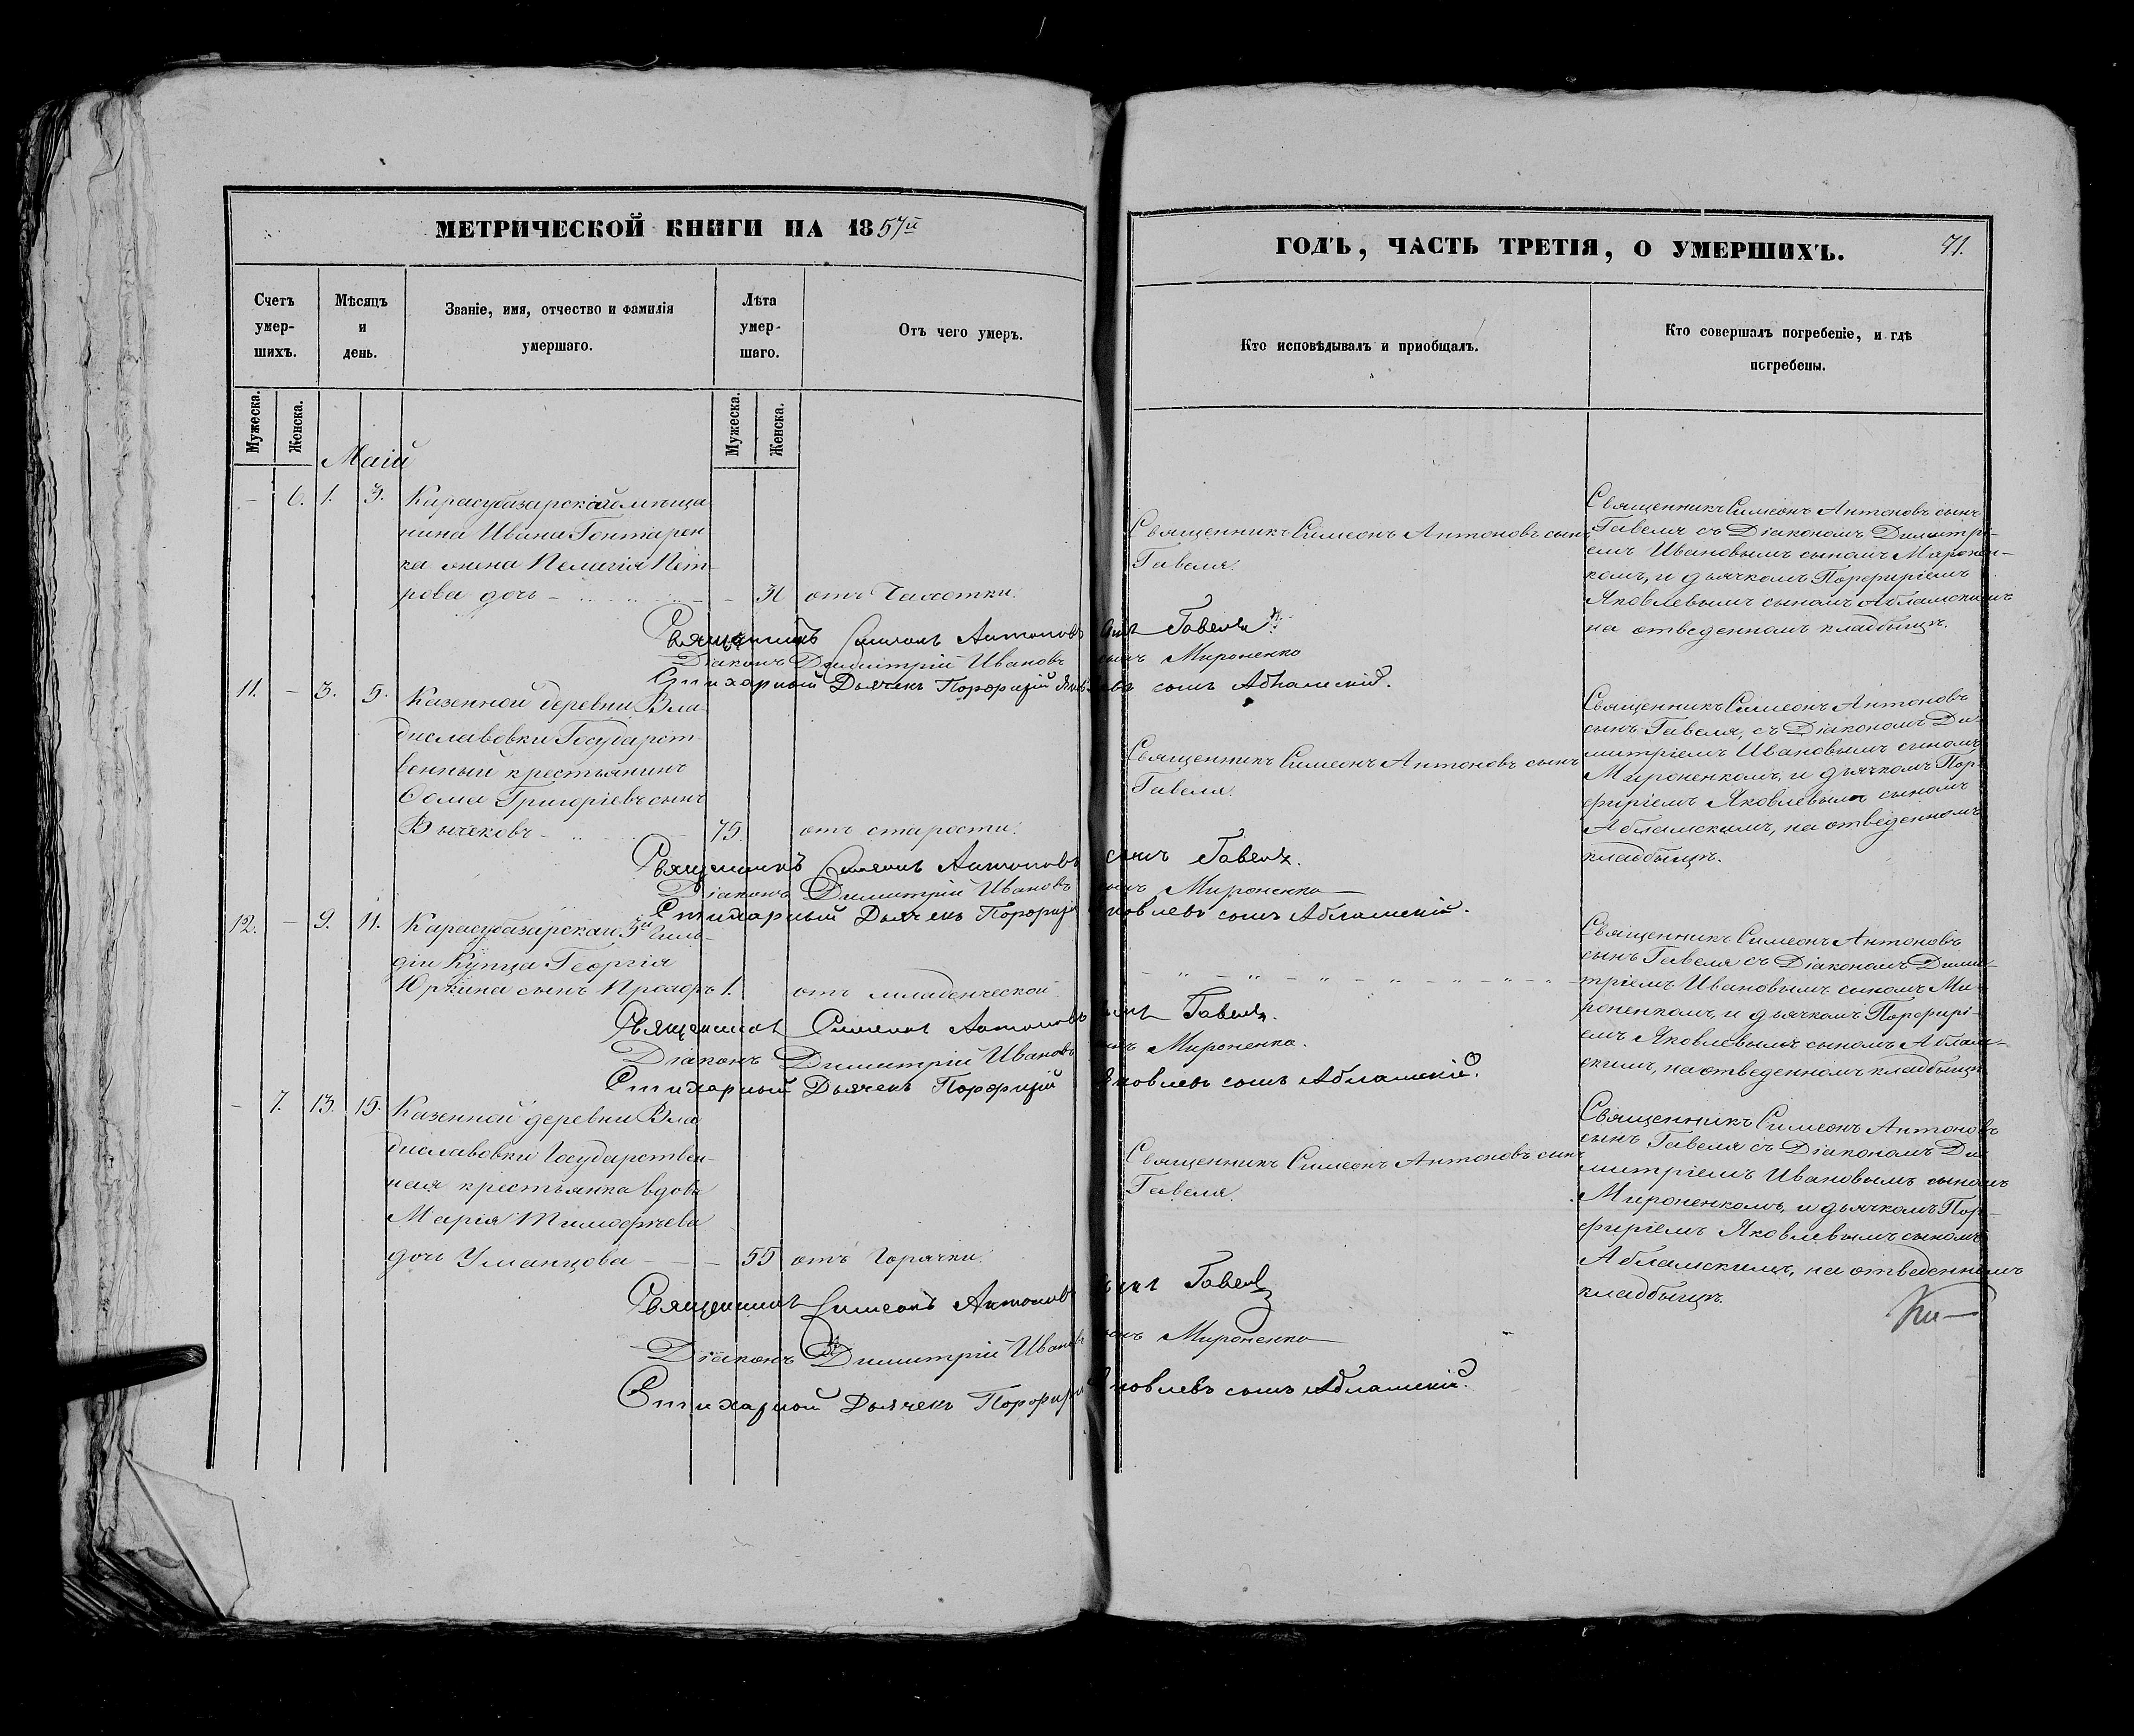 МЕТРИЧЕСКОЙ КНИГИ НА 1857й
Счетъ умер-шихъ.
Мѣсяцъ и день.
Званіе, имя, отчество и фамилія умершаго.
Лѣта умер-шаго.
Отъ чего умеръ.
Мужеска.
Женска.
Мужеска.
Женска.
Маій
– 6. 1. 3. Карасубазарскаго мѣща
нина Ивана Гонтарен
ка жена Пелагія Пет-
рова дочь – – 31 отъ Чахотки.
Священникъ Симеонъ Антоновъ сынъ Гавеля
Діаконъ Димитрій Ивановъ сынъ Мироненко
Стихарный Дьячекъ Порфирій Яковлевъ сынъ Абламскій.
11. – 3. 5. Казенной деревни Вла-
диславовки Государст-
венный крестьянинъ
Ѳома Григоріевъ сынъ
Бычековъ – 75. отъ старости.
Священникъ Симеонъ Антоновъ сынъ Гавеля.
Діаконъ Димитрій Ивановъ сынъ Мироненко
Стихарный Дьячекъ Порфирій Яковлевъ сынъ Абламскій.
12. – 9. 11. Карасубазарскаго 3й Гиль-
діи Купца Георгія
Юркина сынъ 1. отъ младенческой
Священникъ Симеонъ Антоновъ сынъ Гавеля.
Діаконъ Димитрій Ивановъ сынъ Мироненко.
Стихарный Дьячекъ Порфирій Яковлевъ сынъ Абламскій.
– 7. 13. 15. Казенной деревни Вла
диславовки Государствен-
ная крестьянка вдова
Марія Тимофѣева
дочь Уманцова – – – 55 отъ Горячки.
Священникъ Симеонъ Антоновъ сынъ Гавеля
Діаконъ Димитрій Ивановъ сынъ Мироненко
Стихарный Дьячекъ Порфирій Яковлевъ сынъ Абламскій.
ГОДЪ, ЧАСТЬ ТРЕТІЯ, О УМЕРШИХЪ.
71.
Кто исповѣдывалъ и пріобщалъ.
Кто совершалъ погребеніе, и гдѣ
погребены.
Священникъ Симеонъ Антоновъ сынъ
Гавеля.
Священникъ Симеонъ Антоновъ сынъ
Гавеля съ Діакономъ Димитрі-
емъ Ивановымъ сыномъ Миронен-
комъ, и дьячкомъ Порфиріемъ
Яковлевымъ сыномъ Абламскимъ
на отведенномъ кладбыщѣ.
Священникъ Симеонъ Антоновъ сынъ
Гавеля.
Священникъ Симеонъ Антоновъ
сынъ Гавеля, съ Діакономъ Ди-
митріемъ Ивановымъ сыномъ
Мироненкомъ, и дьячкомъ Пор-
фиріемъ Яковлевымъ сыномъ
Абламскимъ, на отведенномъ
кладбыщѣ.
– " – " – " – " – " – " –
Священникъ Симеонъ Антоновъ
сынъ Гавеля съ Діакономъ Дими-
тріемъ Ивановымъ сыномъ Ми-
роненкомъ, и дьячкомъ Порфирі-
емъ Яковлевымъ сыномъ Аблам-
скимъ, на отведенномъ кладбыщѣ
Священникъ Симеонъ Антоновъ сынъ
Гавеля.
Священникъ Симеонъ Антоновъ
сынъ Гавеля съ Діакономъ Ди-
митріемъ Ивановымъ сыномъ
Мироненкомъ, и дьячкомъ Пор-
фиріемъ Яковлевымъ сыномъ
Абламскимъ, на отведенномъ
кладбыщѣ.